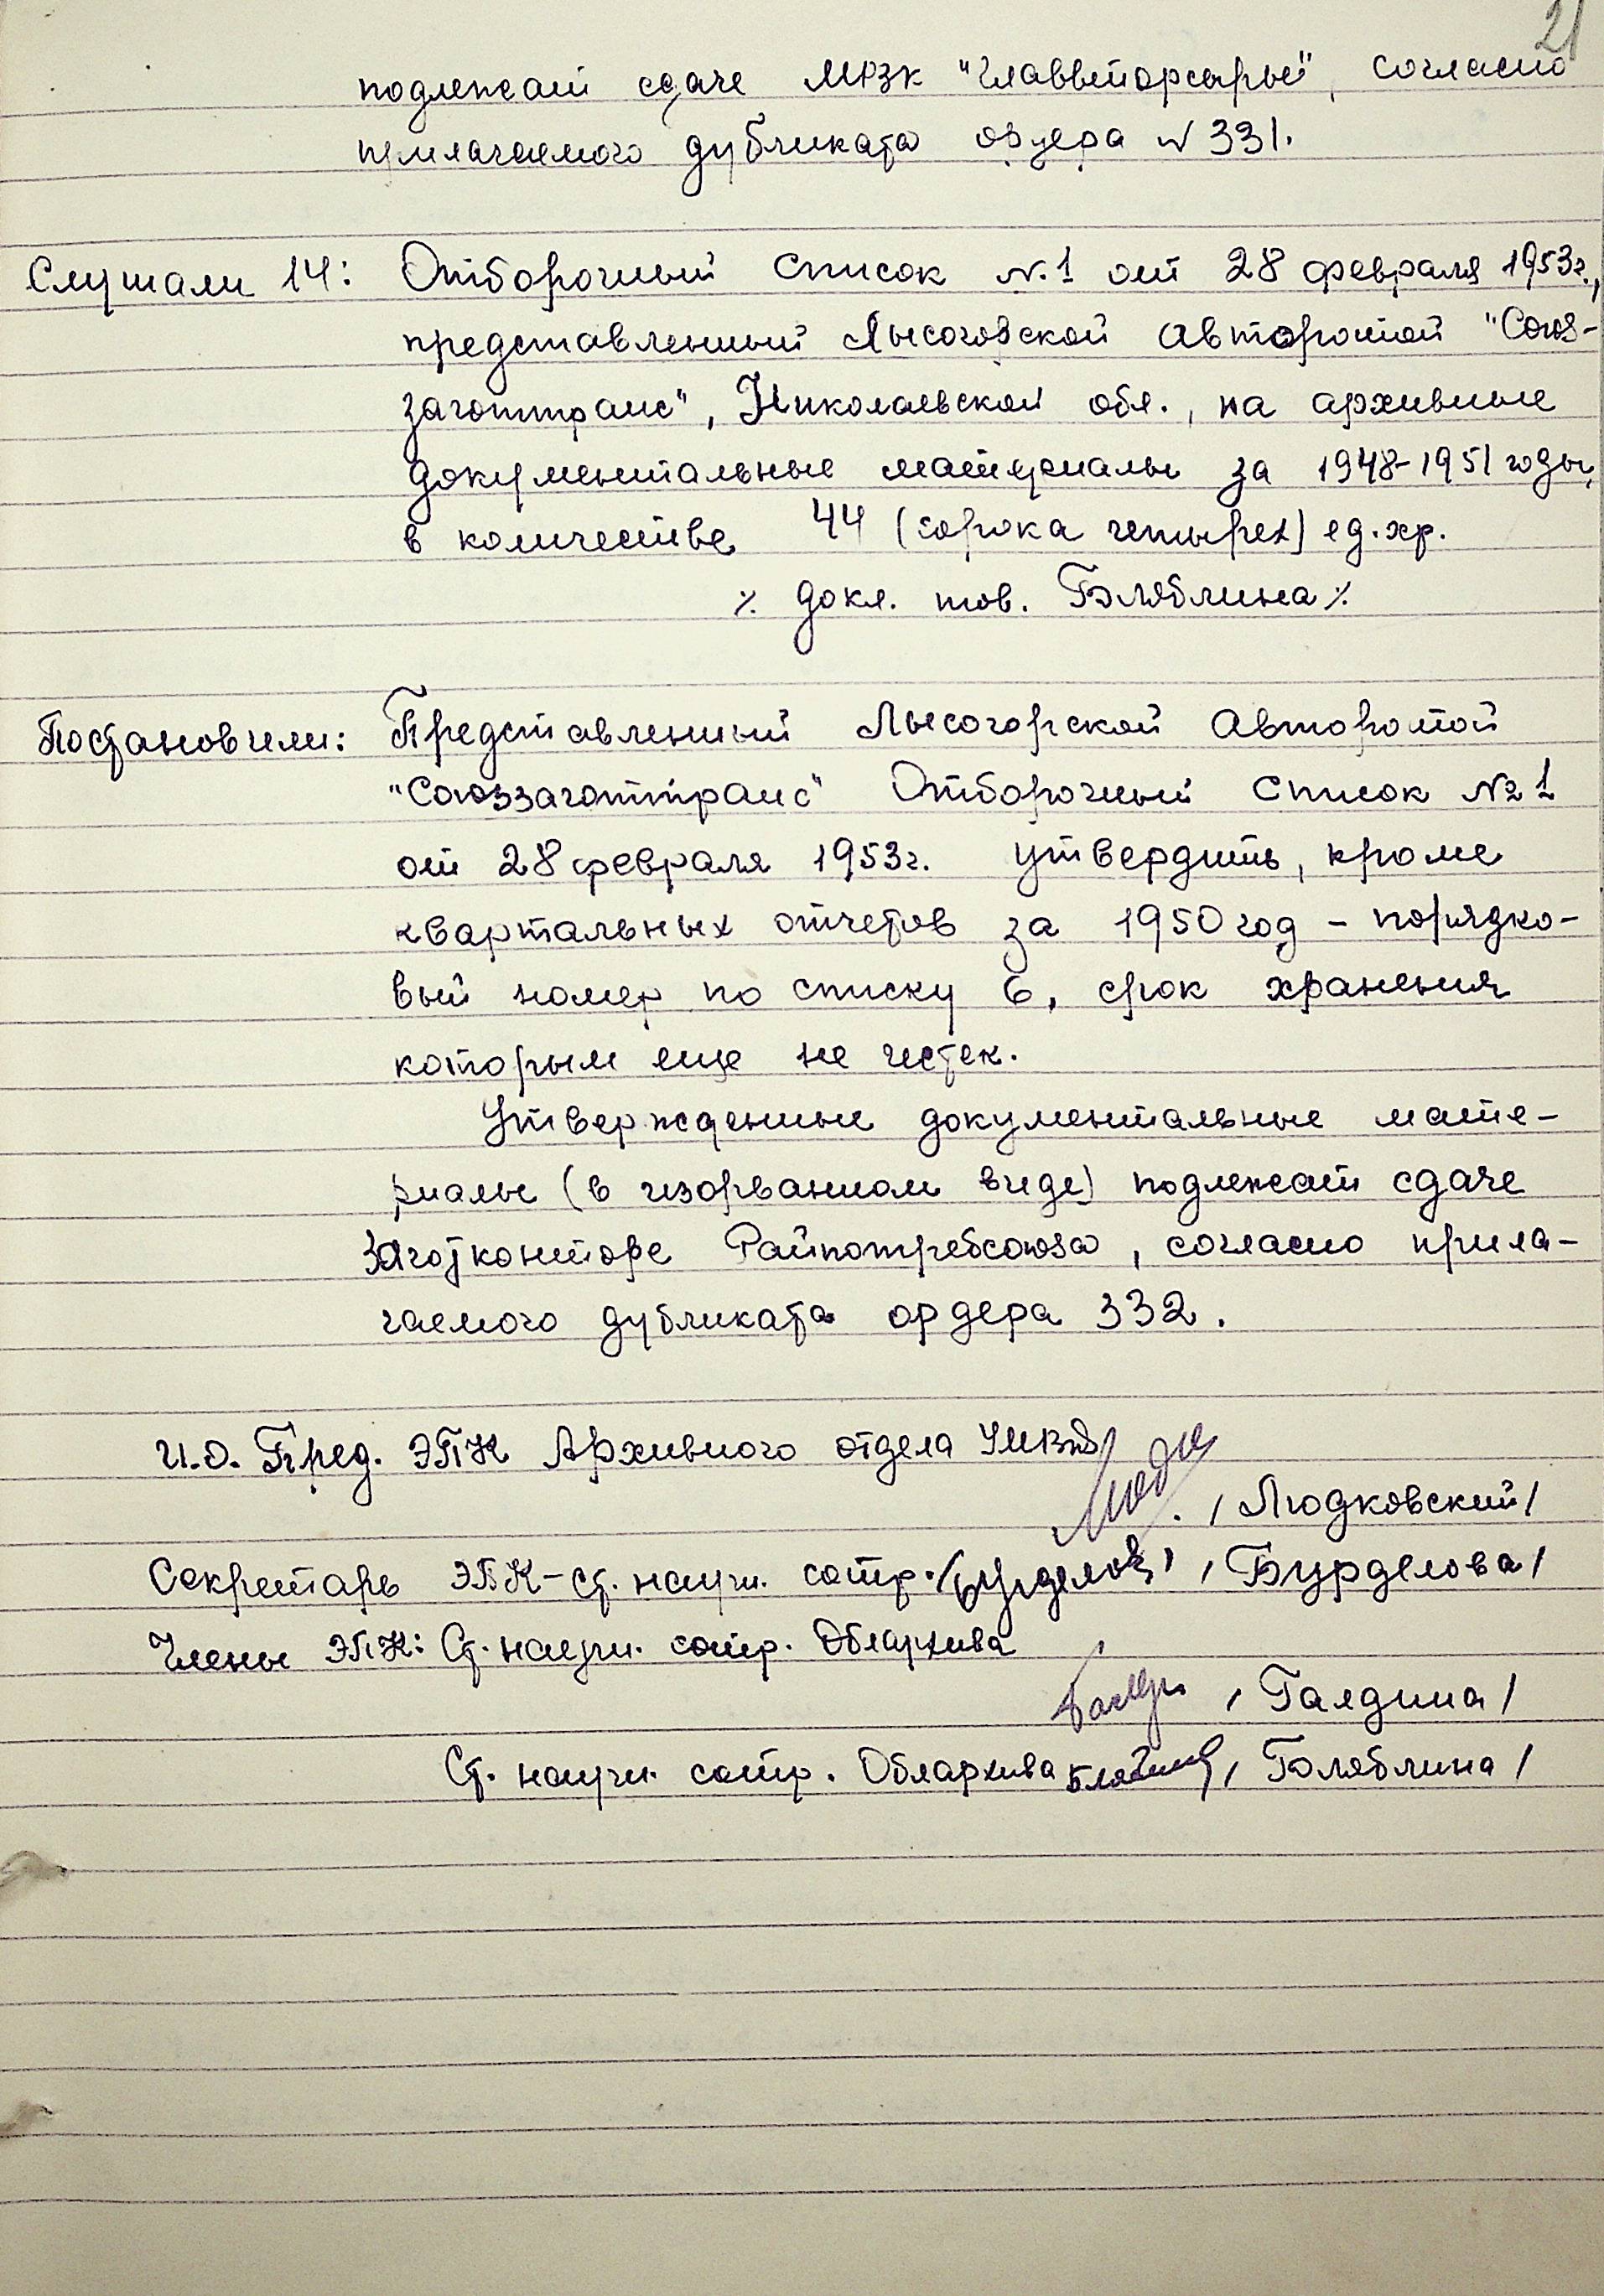 21
подлежат сдаче МРЗК "Главвторсырье", согласно
прилагаемого дубликата ордера № 331.
Слушали 14: Отборочный список №1 от 28 февраля 1953г.,
представленный Лысогорской Авторотой "Союз-
заготтранс", Николаевской обл., на архивные
документальные материалы за 1948-1951 годы,
в количестве 44 (сорока четырех) ед.хр.
٪ докл. тов. Бляблина ٪
Постановили: Представленный Лысогорской Авторотой
"Союззаготтранс" Отборочный список №1
от 28 февраля 1953г. утвердить, кроме
квартальных отчетов за 1950 год - порядко-
вый номер по списку 6, срок хранения
которым еще не истек.
Утвержденные документальные мате-
риалы (в изорванном виде) подлежат сдаче
Заготконторе Райпотребсоюза, согласно прила-
гаемого дубликата ордера 332.
И.О. Пред. ЭПК Архивного отдела УМВД
/ Людковский /
Секретарь ЭПК - ст. научн. сотр. / Бурделова /
Члены ЭПК: Ст. научн. сотр. Облархива
/ Галдина /
Ст. научн. сотр. Облархива / Бляблина /